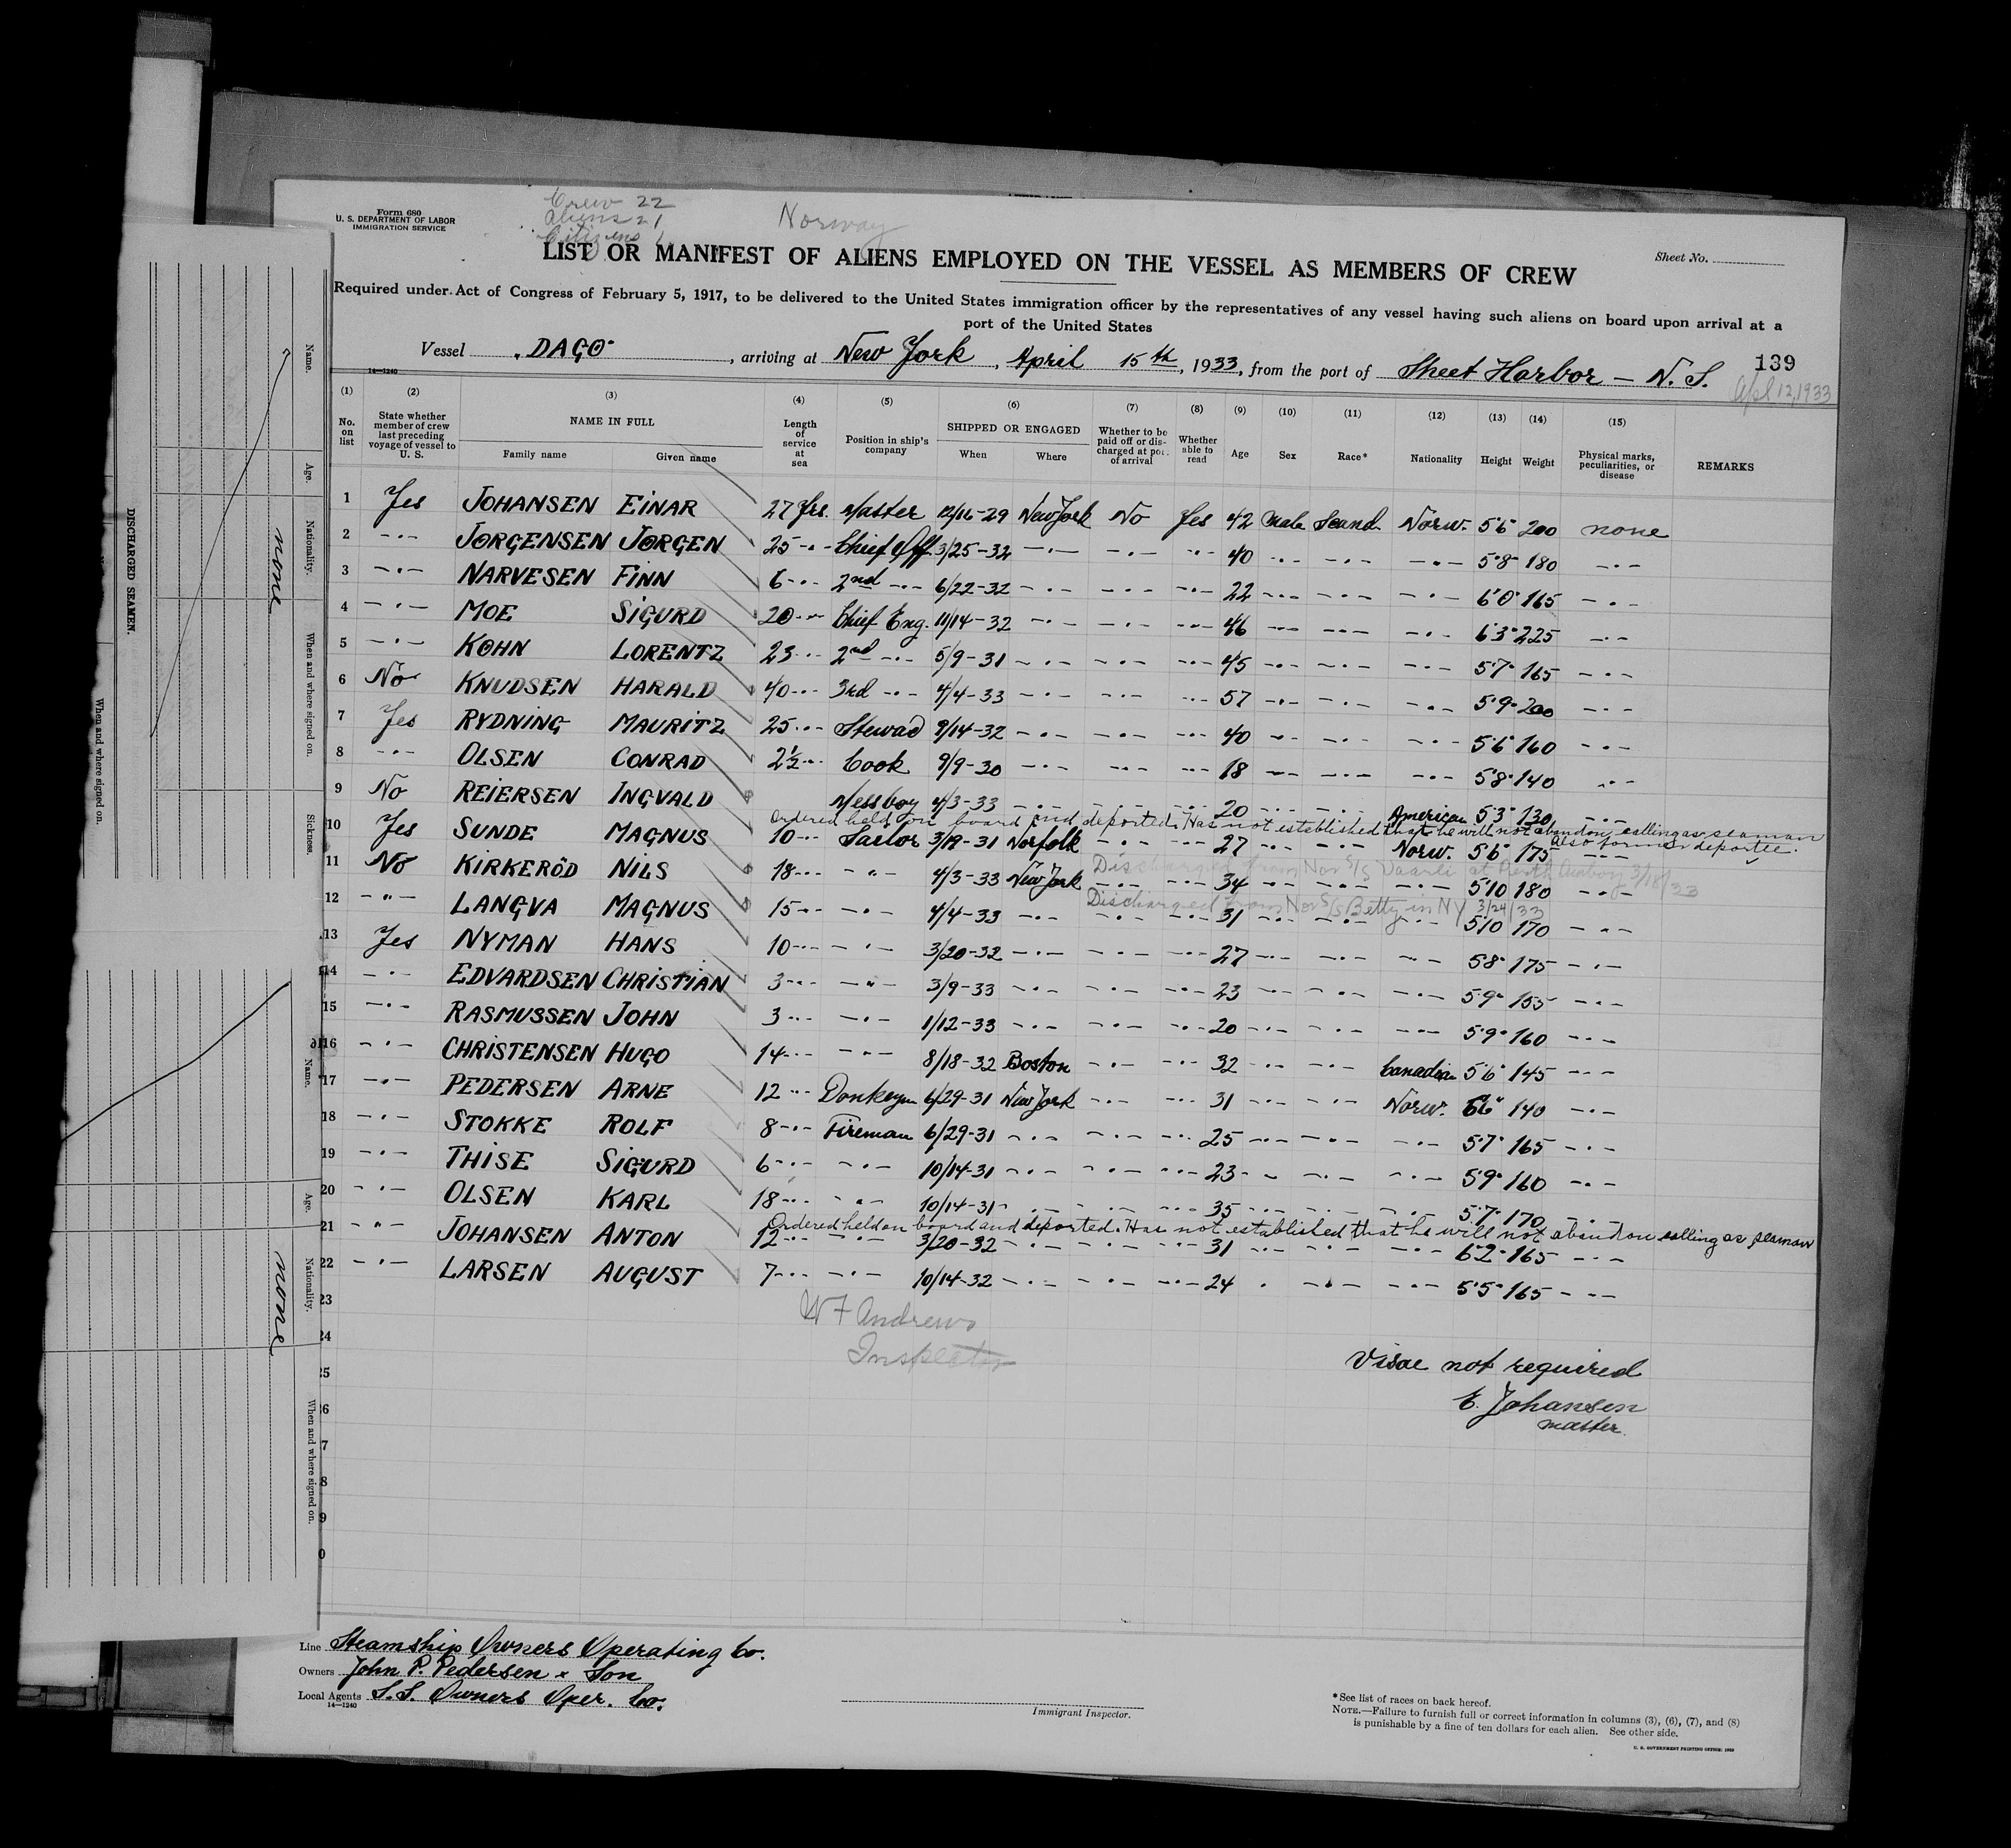 Form 680
U. S. DEPARTMENT OF LABOR
IMMIGRATION SERVICE
Crew 22
aliens 21
Citizens 1
Norway
LIST OR MANIFEST OF ALIENS EMPLOYED ON THE VESSEL AS MEMBERS OF CREW
Sheet No.
Required under Act of Congress of February 5, 1917, to be delivered to the United States immigration officer by the representatives of any vessel having such aliens on board upon arrival at a
port of the United States
Vessel "DAGO" , arriving at New York , April 15th , 1933, from the port of Sheet Harbor - N. S.
139
Apl 12, 1933
14—1240
(1) (2) (3) (4) (5) (6) (7) (8) (9) (10) (11) (12) (13) (14) (15)
No. on list
State whether member of crew last preceding voyage of vessel to U. S.
NAME IN FULL
Family name Given name
Length of service at sea
Position in ship's company
SHIPPED OR ENGAGED
When Where
Whether to be paid off or discharged at port of arrival
Whether able to read
Age Sex Race* Nationality Height Weight
Physical marks, peculiarities, or disease
REMARKS
1 Yes JOHANSEN EINAR 27 Yrs. Master 12/16-29 New York No Yes 42 Male Scand. Norw. 5'6" 200 none
2 -"- JØRGENSEN JØRGEN 25 -"- Chief Off. 3/25-32 -"- -"- -"- 40 -"- -"- -"- 5'8" 180 -"-
3 -"- NARVESEN FINN 6 -"- 2nd -"- 6/22-32 -"- -"- -"- 22 -"- -"- -"- 6'0" 165 -"-
4 -"- MOE SIGURD 20 -"- Chief Eng. 11/14-32 -"- -"- -"- 46 -"- -"- -"- 6'3" 225 -"-
5 -"- KØHN LORENTZ 23 -"- 2nd -"- 5/9-31 -"- -"- -"- 45 -"- -"- -"- 5'7" 165 -"-
6 No KNUDSEN HARALD 40 -"- 3rd -"- 4/4-33 -"- -"- -"- 57 -"- -"- -"- 5'9" 200 -"-
7 Yes RYDNING MAURITZ 25 -"- Steward 9/14-32 -"- -"- -"- 40 -"- -"- -"- 5'6" 160 -"-
8 -"- OLSEN CONRAD 2½ -"- Cook 9/9-30 -"- -"- -"- 18 -"- -"- -"- 5'8" 140 -"-
9 No REIERSEN INGVALD Messboy 4/3-33 -"- -"- -"- 20 -"- -"- American 5'3" 130 -"-
Ordered held on board and deported. Has not established that he will not abandon calling as seaman
Also former deportee.
10 Yes SUNDE MAGNUS 10 -"- Sailor 3/19-31 Norfolk -"- -"- 27 -"- -"- Norw. 5'6" 175 -"-
Discharged from Nor S/S Vaarli at Perth Amboy 3/18/33
11 No KIRKERÖD NILS 18 -"- -"- 4/3-33 New York -"- -"- 34 -"- -"- -"- 5'10 180 -"-
Discharged from Nor S/S Betty in NY 3/24/33
12 -"- LANGVA MAGNUS 15 -"- -"- 4/4-33 -"- -"- -"- 31 -"- -"- -"- 5'10 170 -"-
13 Yes NYMAN HANS 10 -"- -"- 3/20-32 -"- -"- -"- 27 -"- -"- -"- 5'8 175 -"-
14 -"- EDVARDSEN CHRISTIAN 3 -"- -"- 3/9-33 -"- -"- -"- 23 -"- -"- -"- 5'9" 155 -"-
15 -"- RASMUSSEN JOHN 3 -"- -"- 1/12-33 -"- -"- -"- 20 -"- -"- -"- 5'9" 160 -"-
16 -"- CHRISTENSEN HUGO 14 -"- -"- 8/18-32 Boston -"- -"- 32 -"- -"- Canadian 5'6" 145 -"-
17 -"- PEDERSEN ARNE 12 -"- Donkeym 6/29-31 New York -"- -"- 31 -"- -"- Norw. 5'6" 140 -"-
18 -"- STOKKE ROLF 8 -"- Fireman 6/29-31 -"- -"- -"- 25 -"- -"- -"- 5'7" 165 -"-
19 -"- THISE SIGURD 6 -"- -"- 10/14-31 -"- -"- -"- 23 -"- -"- -"- 5'9" 160 -"-
20 -"- OLSEN KARL 18 -"- -"- 10/14-31 -"- -"- -"- 35 -"- -"- -"- 5'7" 170 -"-
Ordered held on board and deported. Has not established that he will not abandon calling as seaman
21 -"- JOHANSEN ANTON 12 -"- -"- 3/20-32 -"- -"- -"- 31 -"- -"- -"- 6'2" 165 -"-
22 -"- LARSEN AUGUST 7 -"- -"- 10/14-32 -"- -"- -"- 24 -"- -"- -"- 5'5" 165 -"-
23
24
25
26
7
8
9
0
W F Andrews
Inspector
Visae not required
E. Johansen
master.
Line Steamship Owners Operating Co.
Owners John P. Pedersen & Son
Local Agents S.S. Owners Oper. Co.
14—1240
Immigrant Inspector.
*See list of races on back hereof.
NOTE.—Failure to furnish full or correct information in columns (3), (6), (7), and (8)
is punishable by a fine of ten dollars for each alien. See other side.
U. S. GOVERNMENT PRINTING OFFICE: 
DISCHARGED SEAMEN.
When and where signed on.
Name.
Age.
Nationality.
When and where signed on.
Sickness.
none
Name.
Age.
Nationality.
When and where signed on.
none